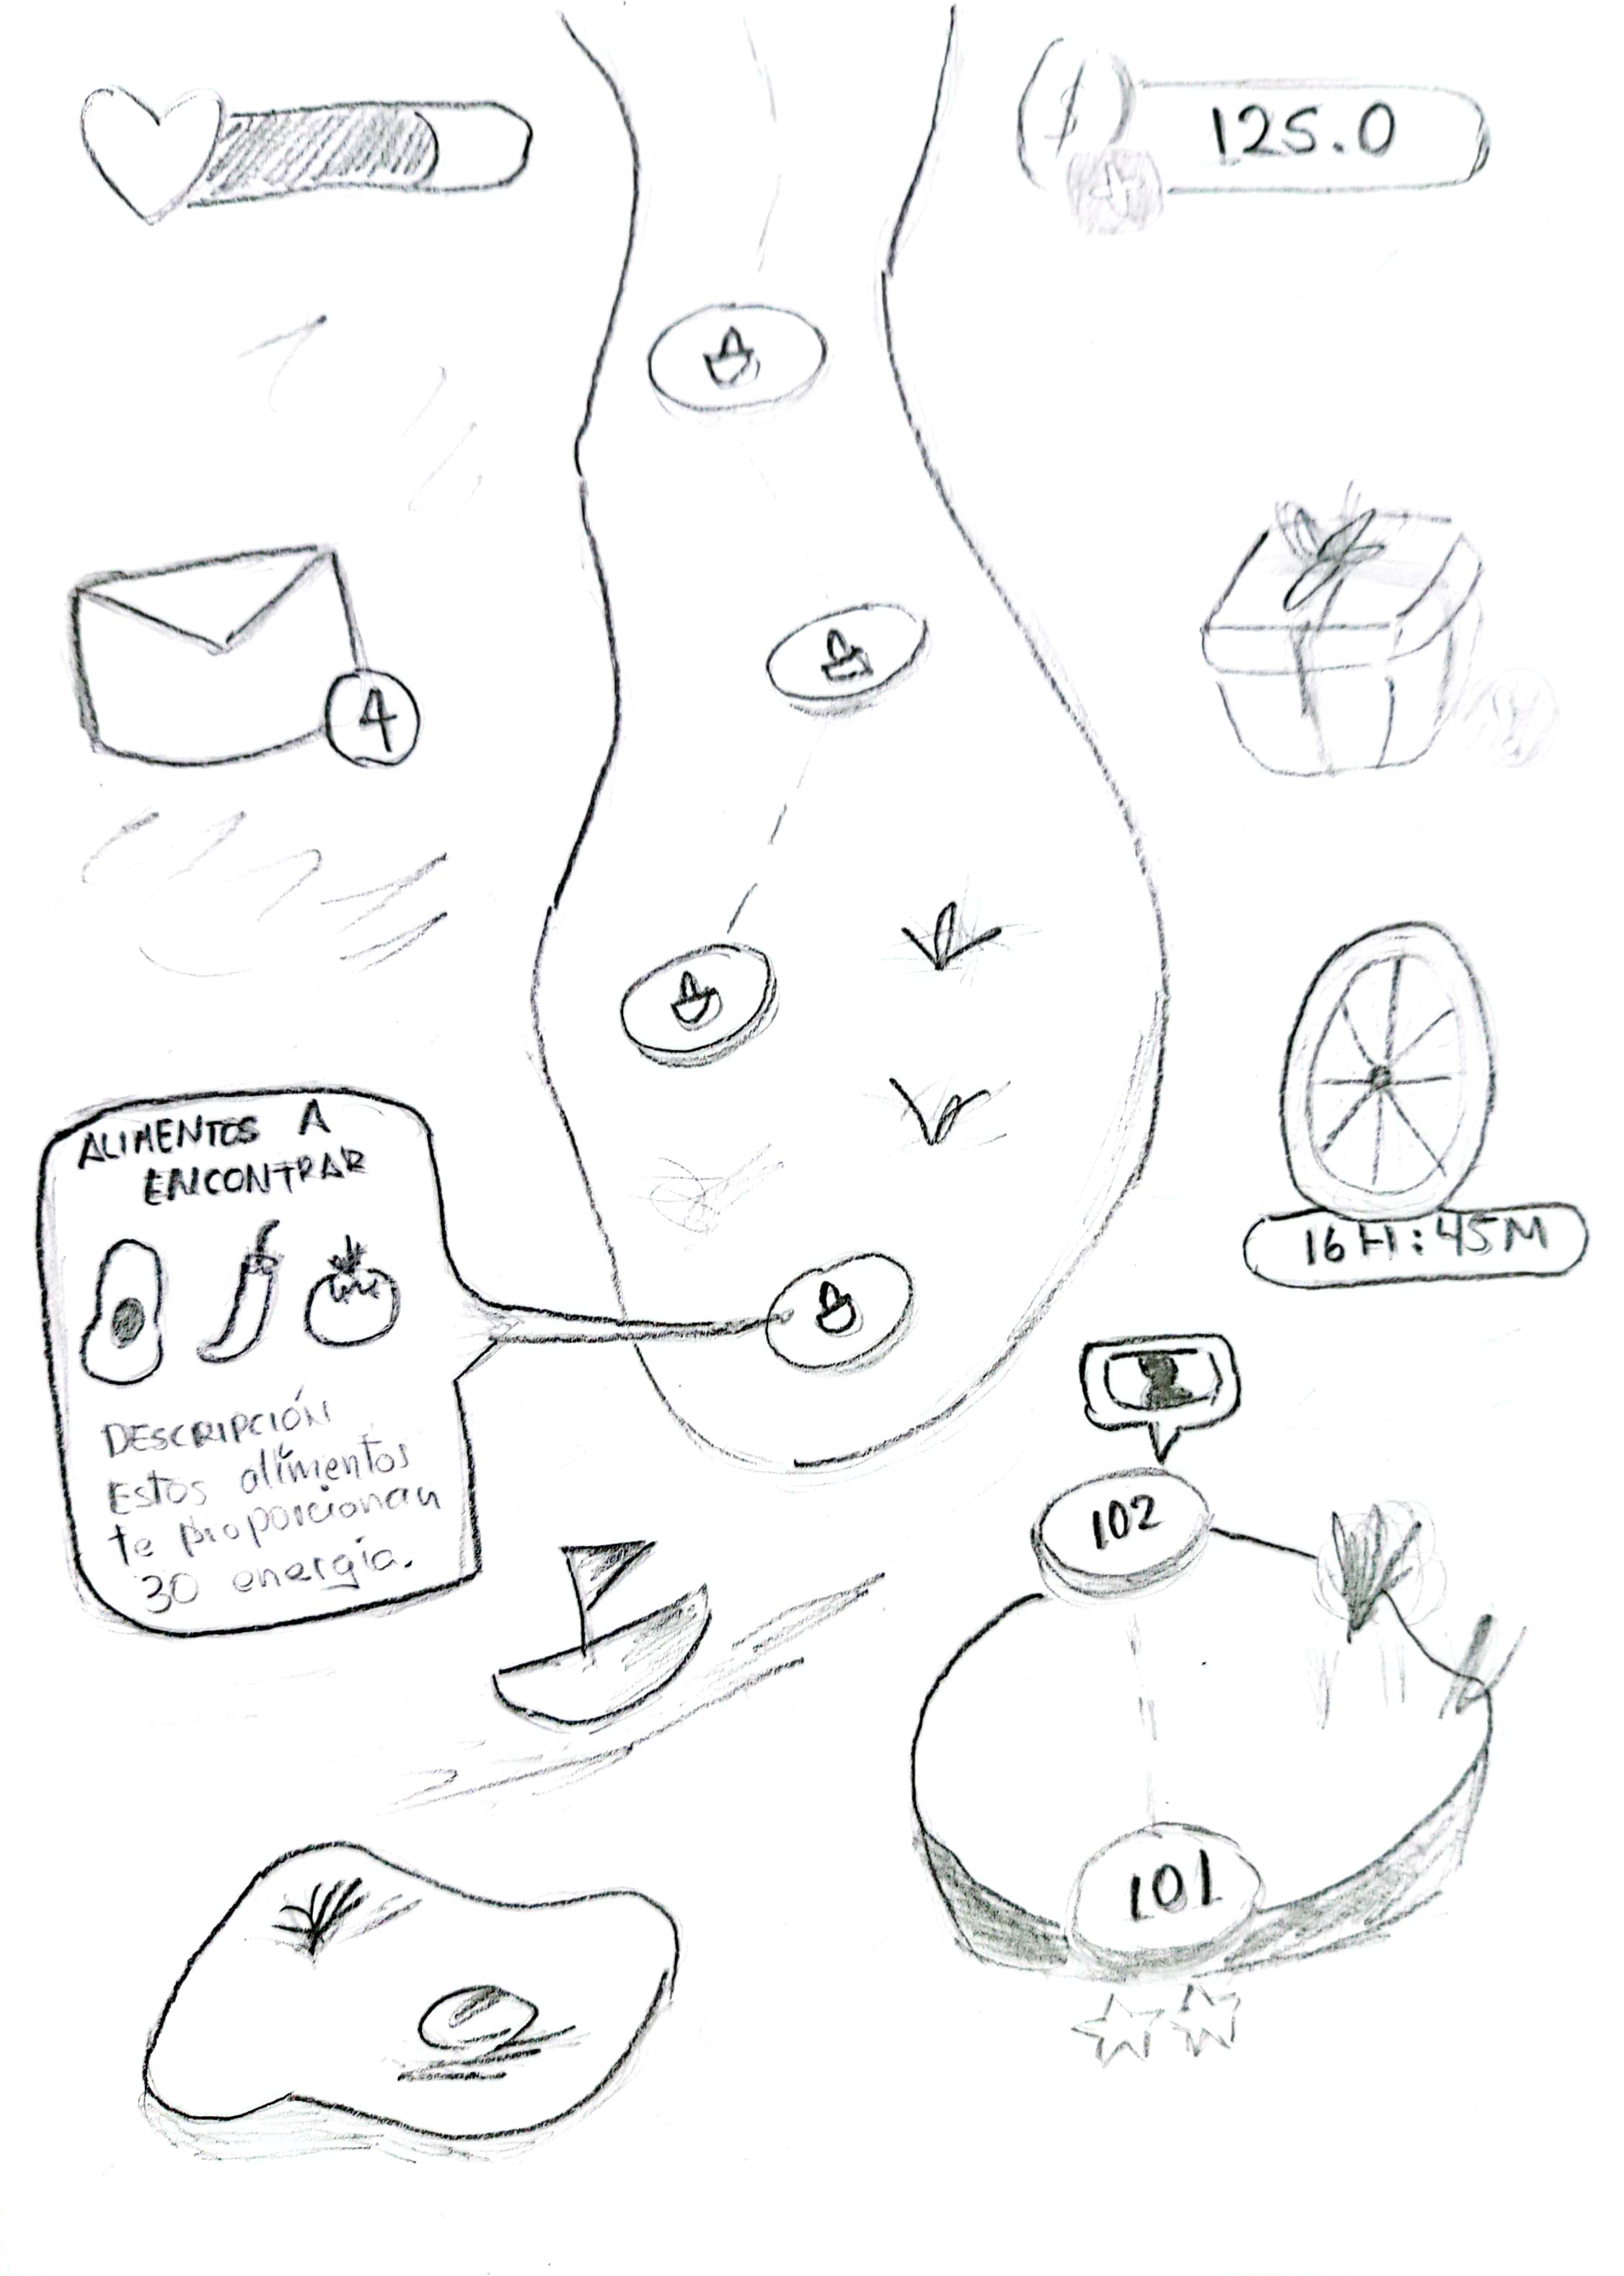 $
125.0
4
ALIMENTOS A
ENCONTRAR
16H:45M
DESCRIPCIÓN
Estos alimentos
te proporcionan
30 energía.
102
101